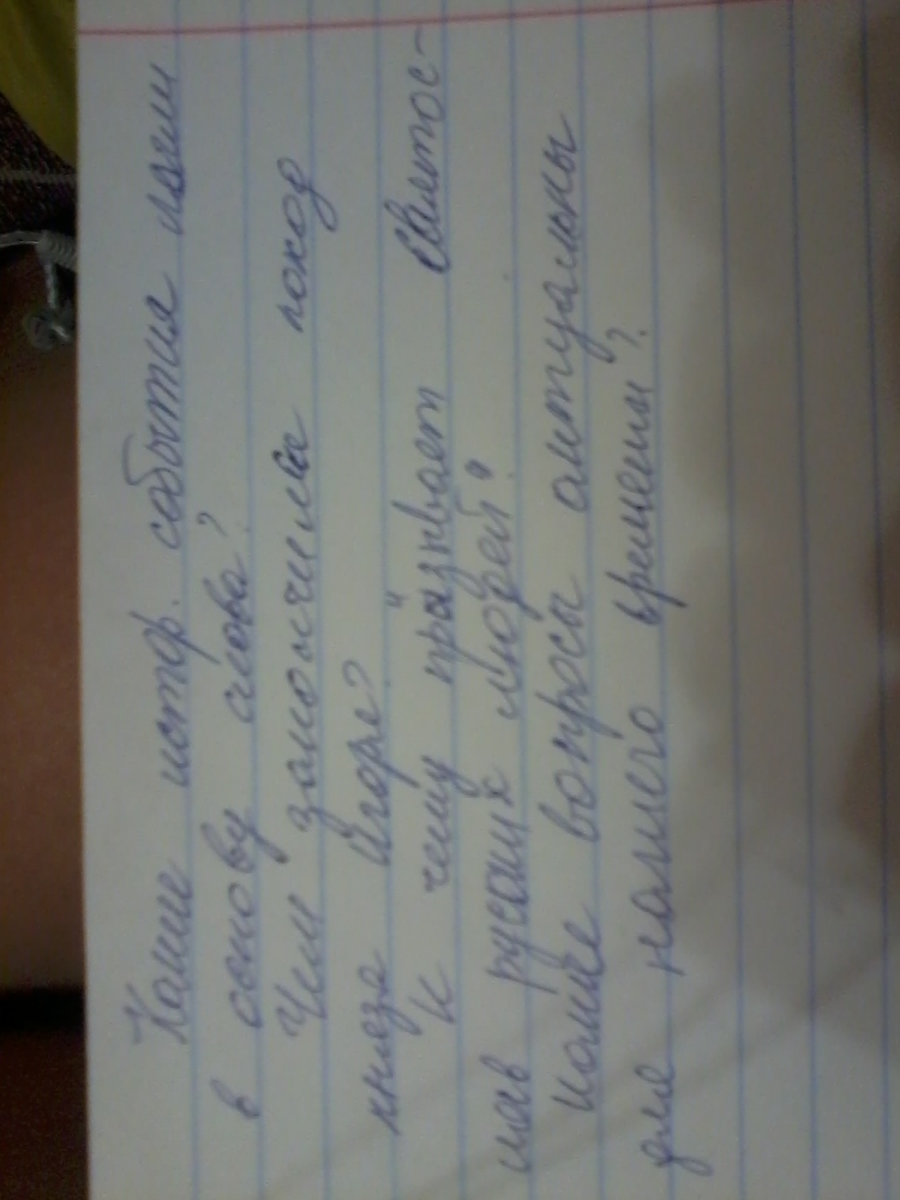 Какие истор. события легли
в основу слова?
Чем закончился поход
князя Игоря?
К чему призывает Святос-
лав русских людей?
какие вопросы актуальны
для нашего времени?